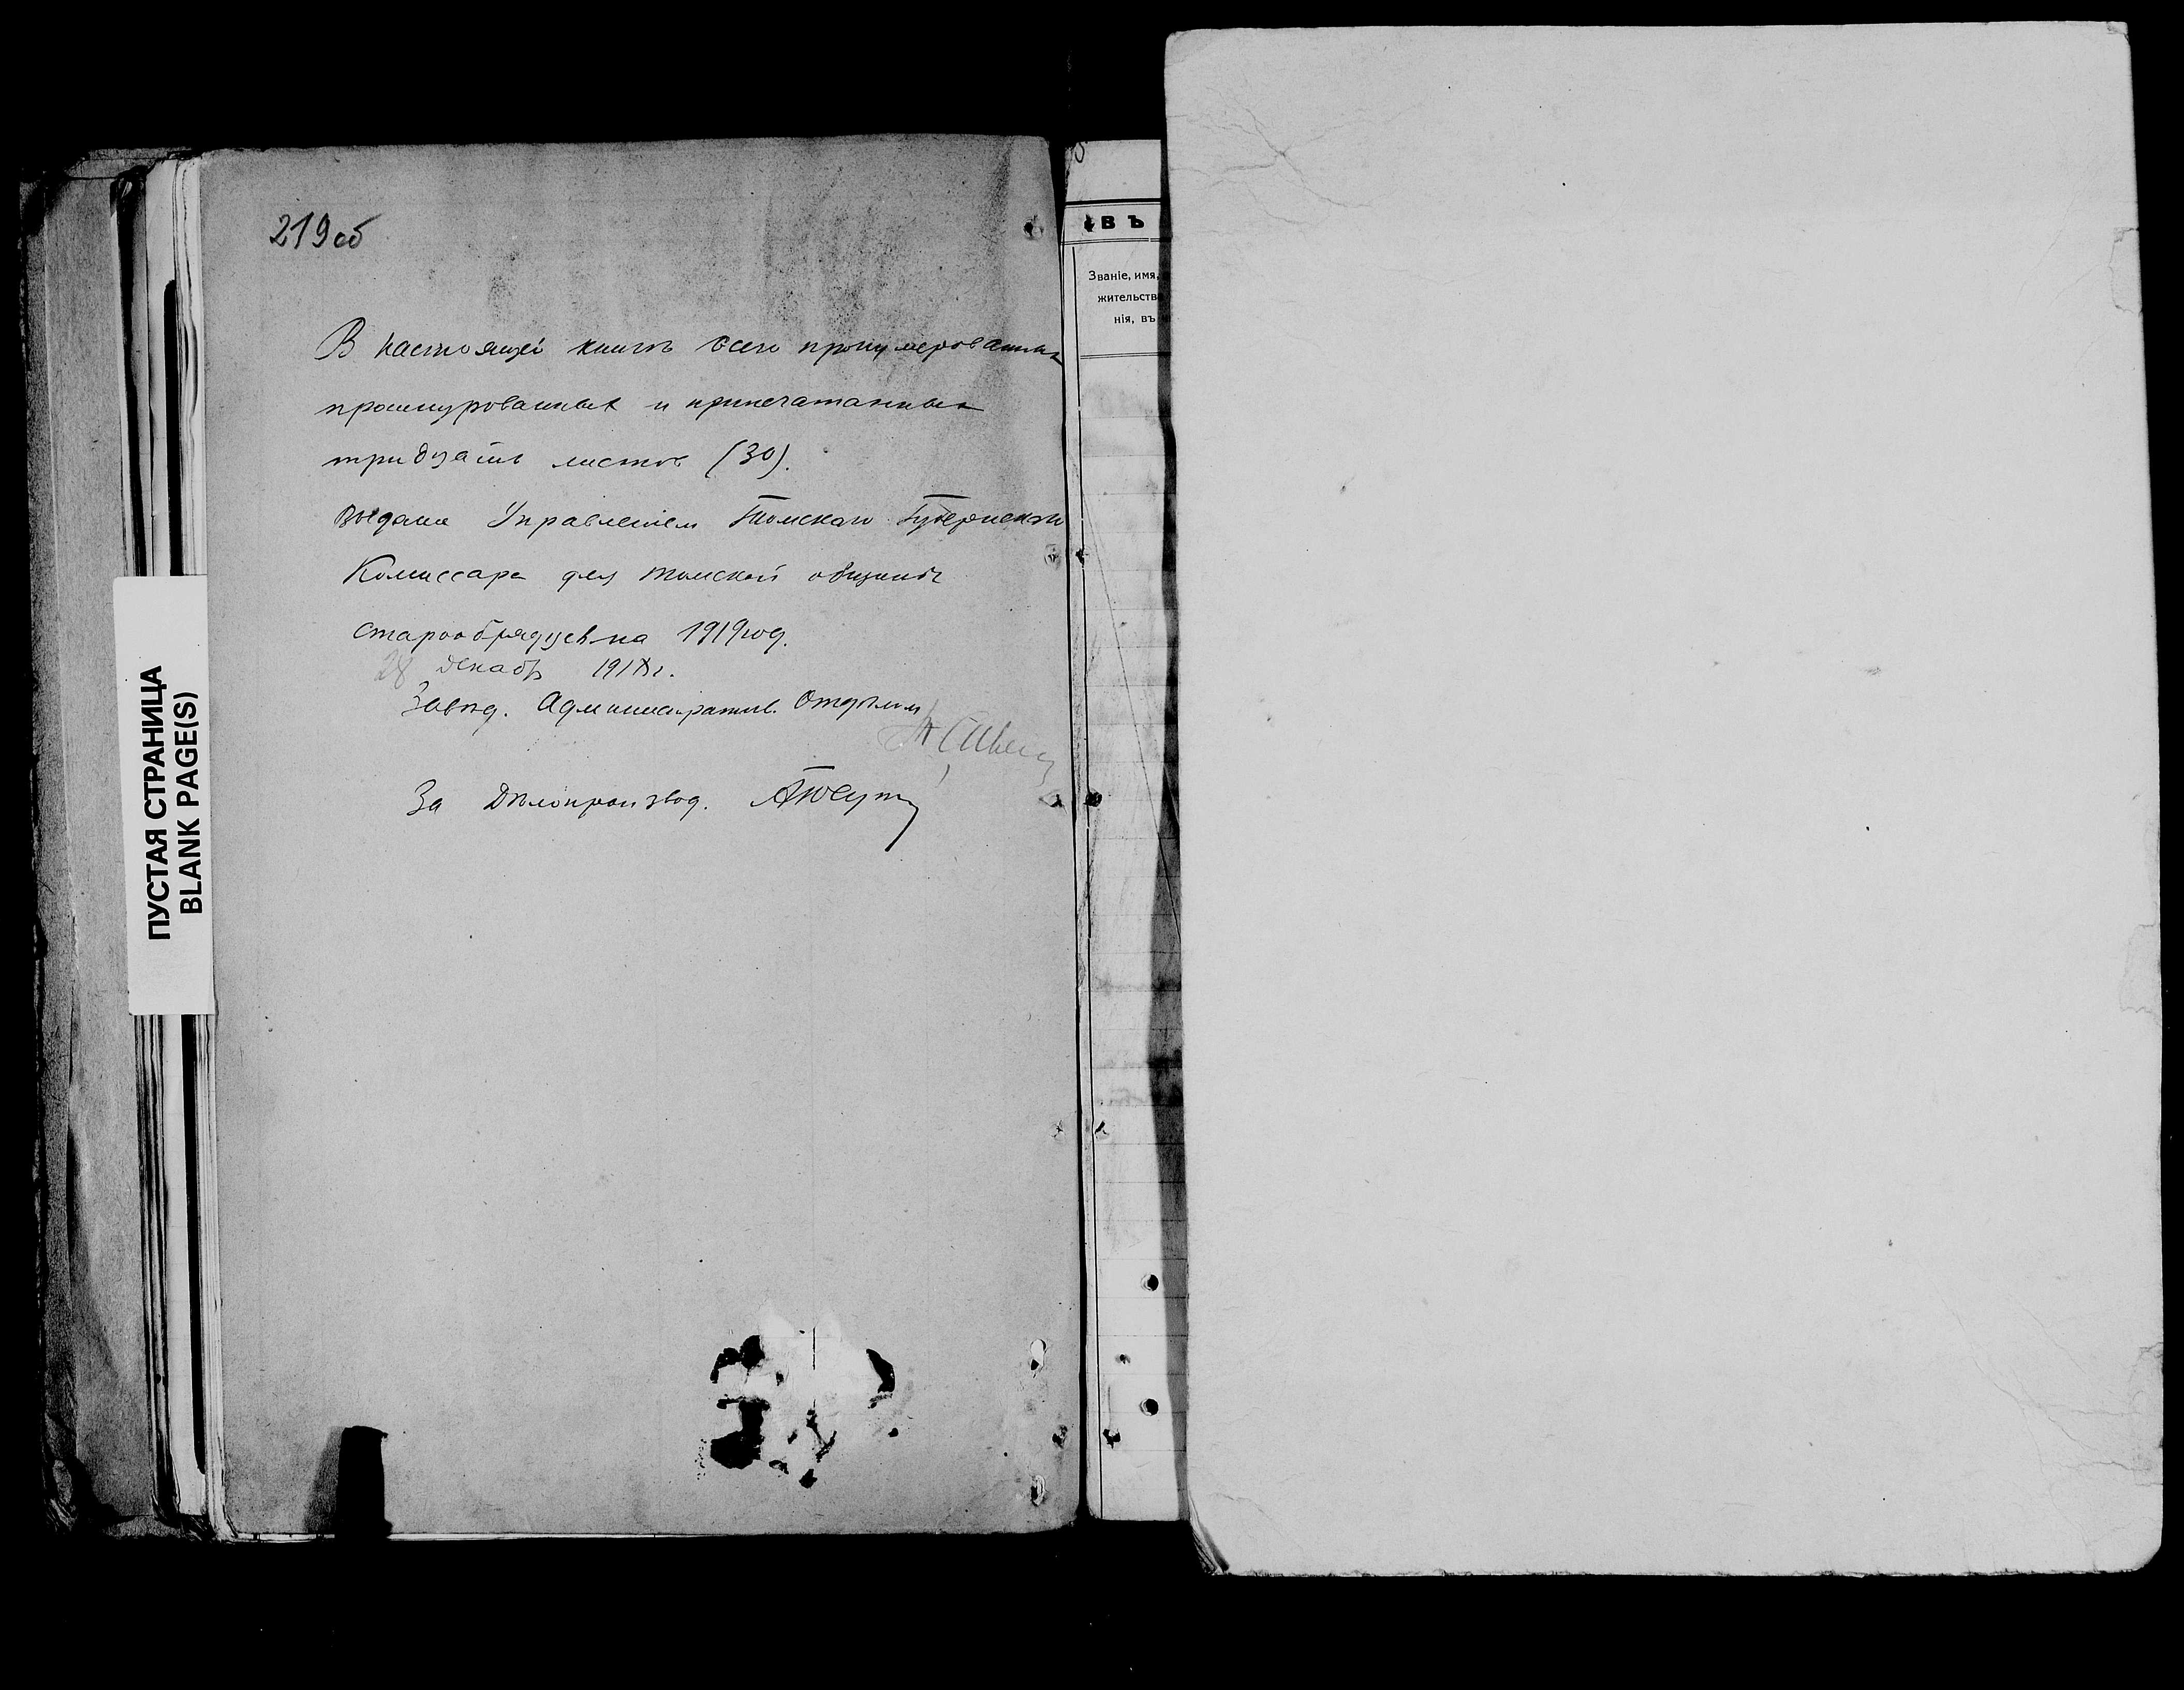 219об
В настоящей книгѣ всего пронумерованных
прошнурованных и припечатанных
тридцать листов (30).
Выдана Управленiем Томскаго Губернскаго
Комиссара для томской общины
старообрядцев на 1919 год.
28 декабр 1918 г.
Завѣд. Административ. Отдѣлом
За Дѣлопроизвод.
ПУСТАЯ СТРАНИЦА
BLANK PAGE(S)
ВЪ
Званiе, имя,
жительств
нiя, въ